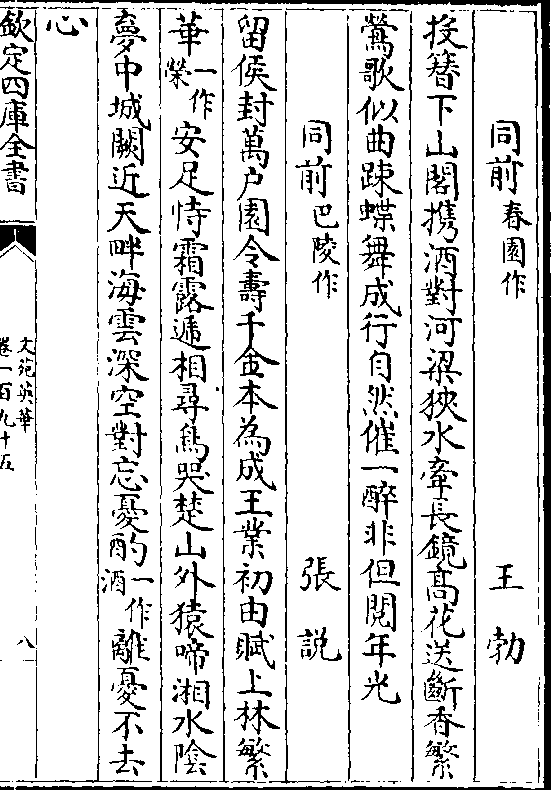 同前春園作　王勃
投簪下山閣携酒對河梁狹水牽長鏡髙花送斷香繁
鶯歌似曲踈蝶舞成行自然催一醉非但閱年光
同前巴陵作　張説
留侯封萬户園令壽千金本為成王業初由賦上林繁
華一作榮安足恃霜露遞相尋鳥哭楚山外猿啼湘水陰
夢中城闕近天畔海雲深空對忘憂酌一作酒離憂不去
心
欽定四庫全書
文苑英華
卷一百九十五
八